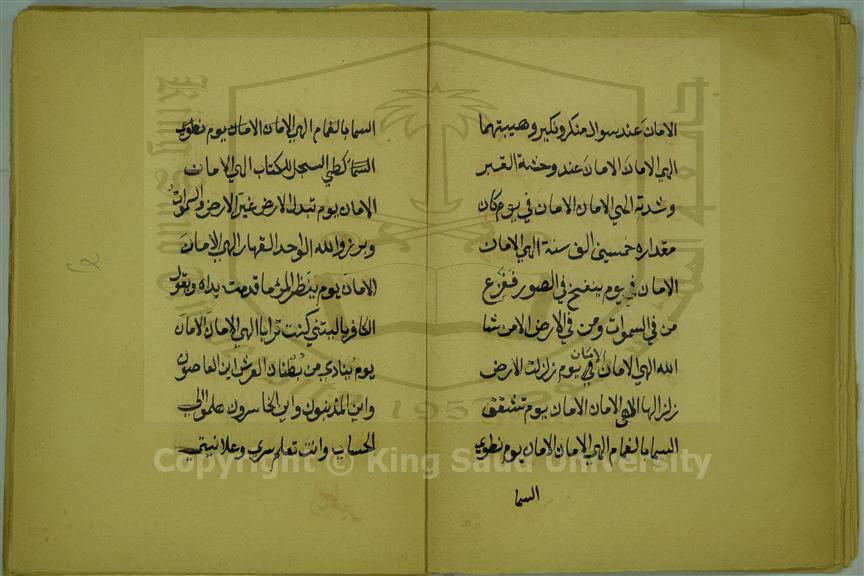 الامان عند سوال منكر ونكير وهيبتهما
الهي الامان الامان عند وحشة القبر
وشدته الهي الامان الامان في يوم كان
مقداره خمسين الف سنة الهي الامان
الامان في يوم ينفخ في الصور ففزع
من في السموات ومن في الارض الا من شا
الله الهي الامان الامان في يوم زلزلت الارض
زلزالها الهي الامان الامان يوم تشقق
السما بالغمام الهي الامان الامان يوم نطوي
السما
السما بالغمام الهي الامان الامان يوم نطوي
السما كطي السجل للكتاب الهي الامان
الامان يوم تبدل الارض غير الارض والسموات
وبرزوا لله الواحد القهار الهي الامان
الامان يوم ينظر المرء ما قدمت يداه ويقول
الكافر يا ليتني كنت ترابا الهي الامان الامان
يوم ينادي من بطنان العرش اين العاصون
واين المذنبون واين الخاسرون هلموا الي
الحساب وانت تعلم سري وعلانيتي
Copyright © King Saud University
1957